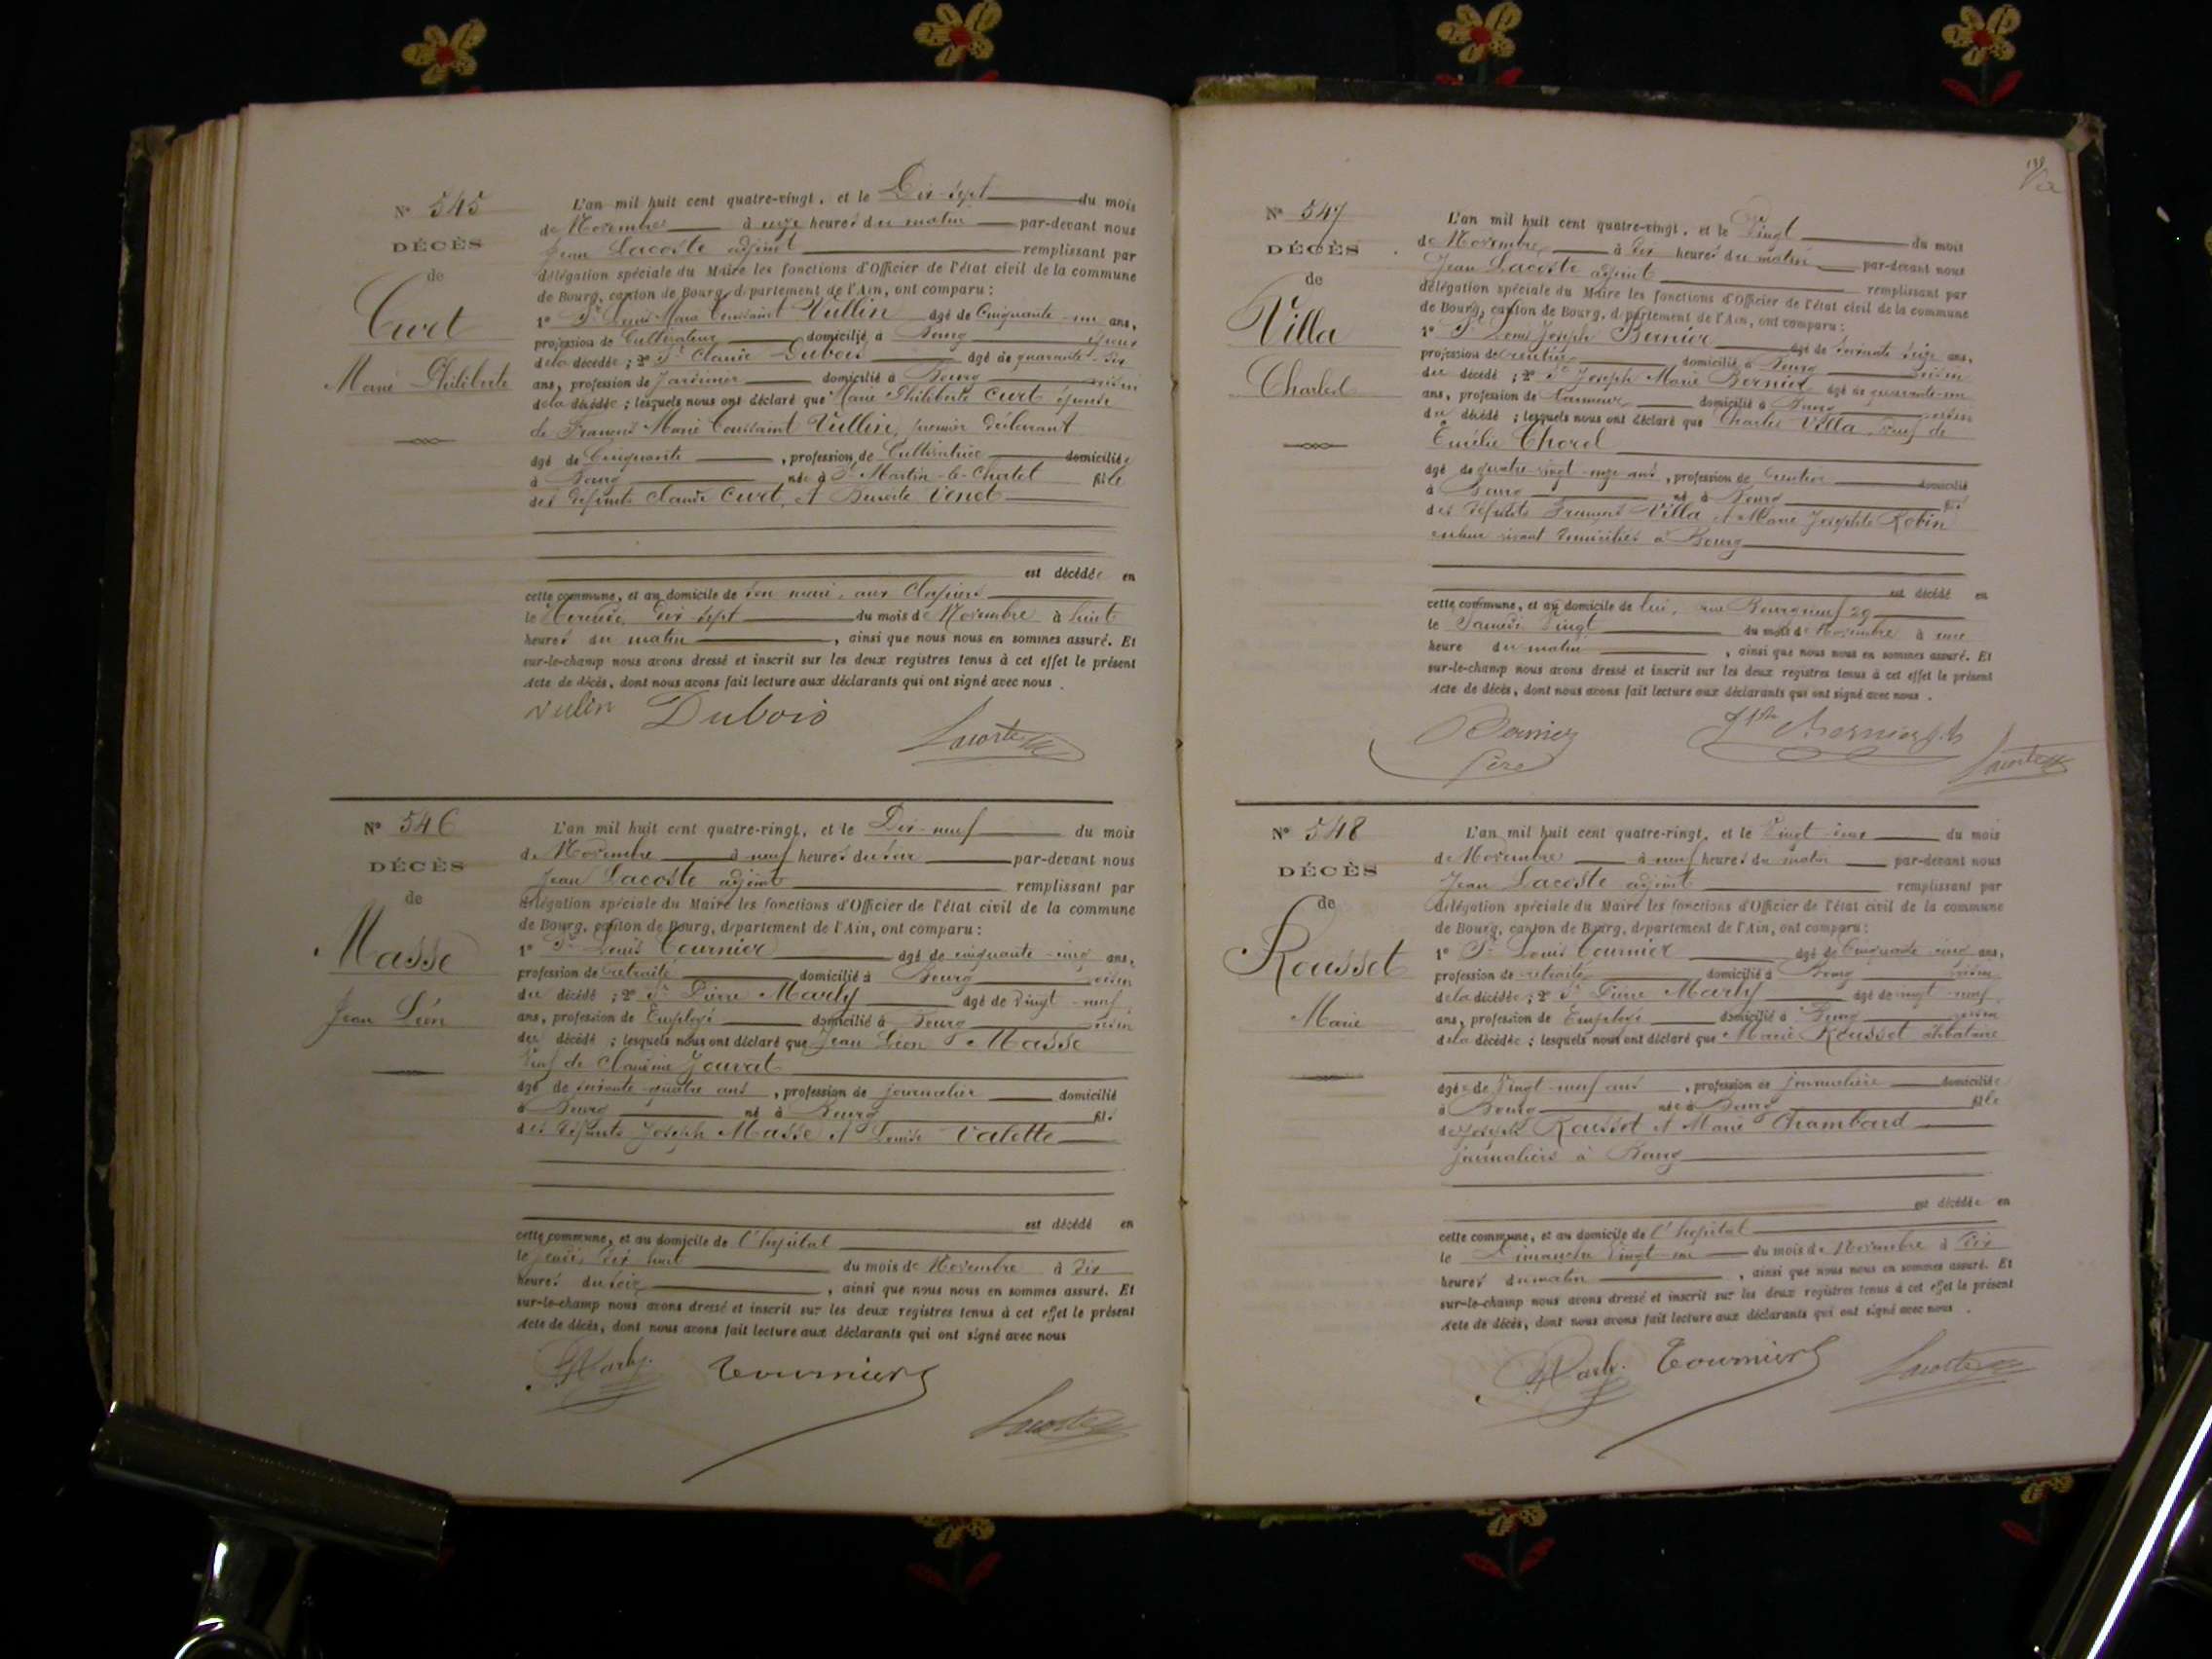 Nº 545
DÉCÈS
de
Curt
Marie Philiberte
L'an mil huit cent quatre-vingt, et le Dix-sept du mois
de Novembre à onze heures du matin par-devant nous
Jean Lacoste adjoint remplissant par
délégation spéciale du Maire les fonctions d'Officier de l'état civil de la commune
de Bourg, canton de Bourg, département de l'Ain, ont comparu :
1º Sr Marie Toussaint Vullin âgé de Cinquante-un ans,
profession de Cultivateur domicilié à Bourg époux
de la décédée ; 2º Sr Claude Dubois âgé de quarante-six
ans, profession de Jardinier domicilié à Bourg voisin
de la décédée ; lesquels nous ont déclaré que Marie Philiberte Curt épouse
de François Marie Toussaint Vullin, premier déclarant
âgée de Cinquante , profession de Cultivatrice domiciliée
à Bourg née à St Martin-le-Chatel fille
des défunts Claude Curt et Benoite Venet
est décédée en
cette commune, et au domicile de son mari, aux Clapiers
le Mercredi dix-sept du mois de Novembre à huit
heures du matin , ainsi que nous nous en sommes assuré. Et
sur-le-champ nous avons dressé et inscrit sur les deux registres tenus à cet effet le présent
Acte de décès, dont nous avons fait lecture aux déclarants qui ont signé avec nous .
Vulin Dubois
Lacoste
Nº 546
DÉCÈS
de
Masse
Jean Léon
L'an mil huit cent quatre-vingt, et le Dix-neuf du mois
de Novembre à neuf heures du par-devant nous
Jean Lacoste adjoint remplissant par
délégation spéciale du Maire les fonctions d'Officier de l'état civil de la commune
de Bourg, canton de Bourg, département de l'Ain, ont comparu :
1º Sr Louis Tournier âgé de cinquante-cinq ans,
profession de retraité domicilié à Bourg voisin
du décédé ; 2º Sr Pierre Marly âgé de vingt-neuf
ans, profession de Employé domicilié à Bourg voisin
du décédé ; lesquels nous ont déclaré que Jean Léon Masse
Veuf de Claudine Jouvat
âgé de soixante-quatre ans , profession de journalier domicilié
à Bourg né à Bourg fils
des défunts Joseph Masse et Louise Valette
est décédé en
cette commune, et au domicile de l'hôpital
le jeudi dix huit du mois de Novembre à dix
heures du soir , ainsi que nous nous en sommes assuré. Et
sur-le-champ nous avons dressé et inscrit sur les deux registres tenus à cet effet le présent
Acte de décès, dont nous avons fait lecture aux déclarants qui ont signé avec nous
Marly. Tournier
Lacoste
Nº 547
DÉCÈS
de
Villa
Charles
L'an mil huit cent quatre-vingt, et le Vingt du mois
de Novembre à dix heures du matin par-devant nous
Jean Lacoste adjoint remplissant par
délégation spéciale du Maire les fonctions d'Officier de l'état civil de la commune
de Bourg, canton de Bourg, département de l'Ain, ont comparu :
1º Sr Joseph Bernier âgé de soixante-seize ans,
profession de rentier domicilié à Bourg voisin
du décédé ; 2º Sr Joseph Marie Bernier âgé de quarante-un
ans, profession de domicilié à Bourg voisin
du décédé ; lesquels nous ont déclaré que Charles Villa veuf de
Emélie Chorel
âgé de quatre-vingt-onze ans , profession de rentier domicilié
à Bourg né à Bourg fils
des défunts François Villa et Marie Josephte Robin
domiciliés à Bourg
est décédé en
cette commune, et au domicile de lui, rue Bourgneuf 29
le Samedi vingt du mois de Novembre à une
heure du matin , ainsi que nous nous en sommes assuré. Et
sur-le-champ nous avons dressé et inscrit sur les deux registres tenus à cet effet le présent
Acte de décès, dont nous avons fait lecture aux déclarants qui ont signé avec nous .
Bernier
père
Lacoste
Nº 548
DÉCÈS
de
Rousset
Marie
L'an mil huit cent quatre-vingt, et le du mois
de Novembre à neuf heures du matin par-devant nous
Jean Lacoste adjoint remplissant par
délégation spéciale du Maire les fonctions d'Officier de l'état civil de la commune
de Bourg, canton de Bourg, département de l'Ain, ont comparu :
1º Sr Louis Tournier âgé de Cinquante-cinq ans,
profession de retraité domicilié à Bourg voisin
de la décédée ; 2º Sr Pierre Marly âgé de vingt-neuf
ans, profession de Employé domicilié à Bourg voisin
de la décédée ; lesquels nous ont déclaré que Marie Rousset célibataire
âgée de vingt-neuf ans , profession de journalière domiciliée
à Bourg née à Bourg fille
de Joseph Rousset et Marie Chambard
journaliers à Bourg
est décédée en
cette commune, et au domicile de l'hôpital
le Dimanche vingt-un du mois de Novembre à dix
heures du matin , ainsi que nous nous en sommes assuré. Et
sur-le-champ nous avons dressé et inscrit sur les deux registres tenus à cet effet le présent
Acte de décès, dont nous avons fait lecture aux déclarants qui ont signé avec nous .
Marly. Tournier Lacoste